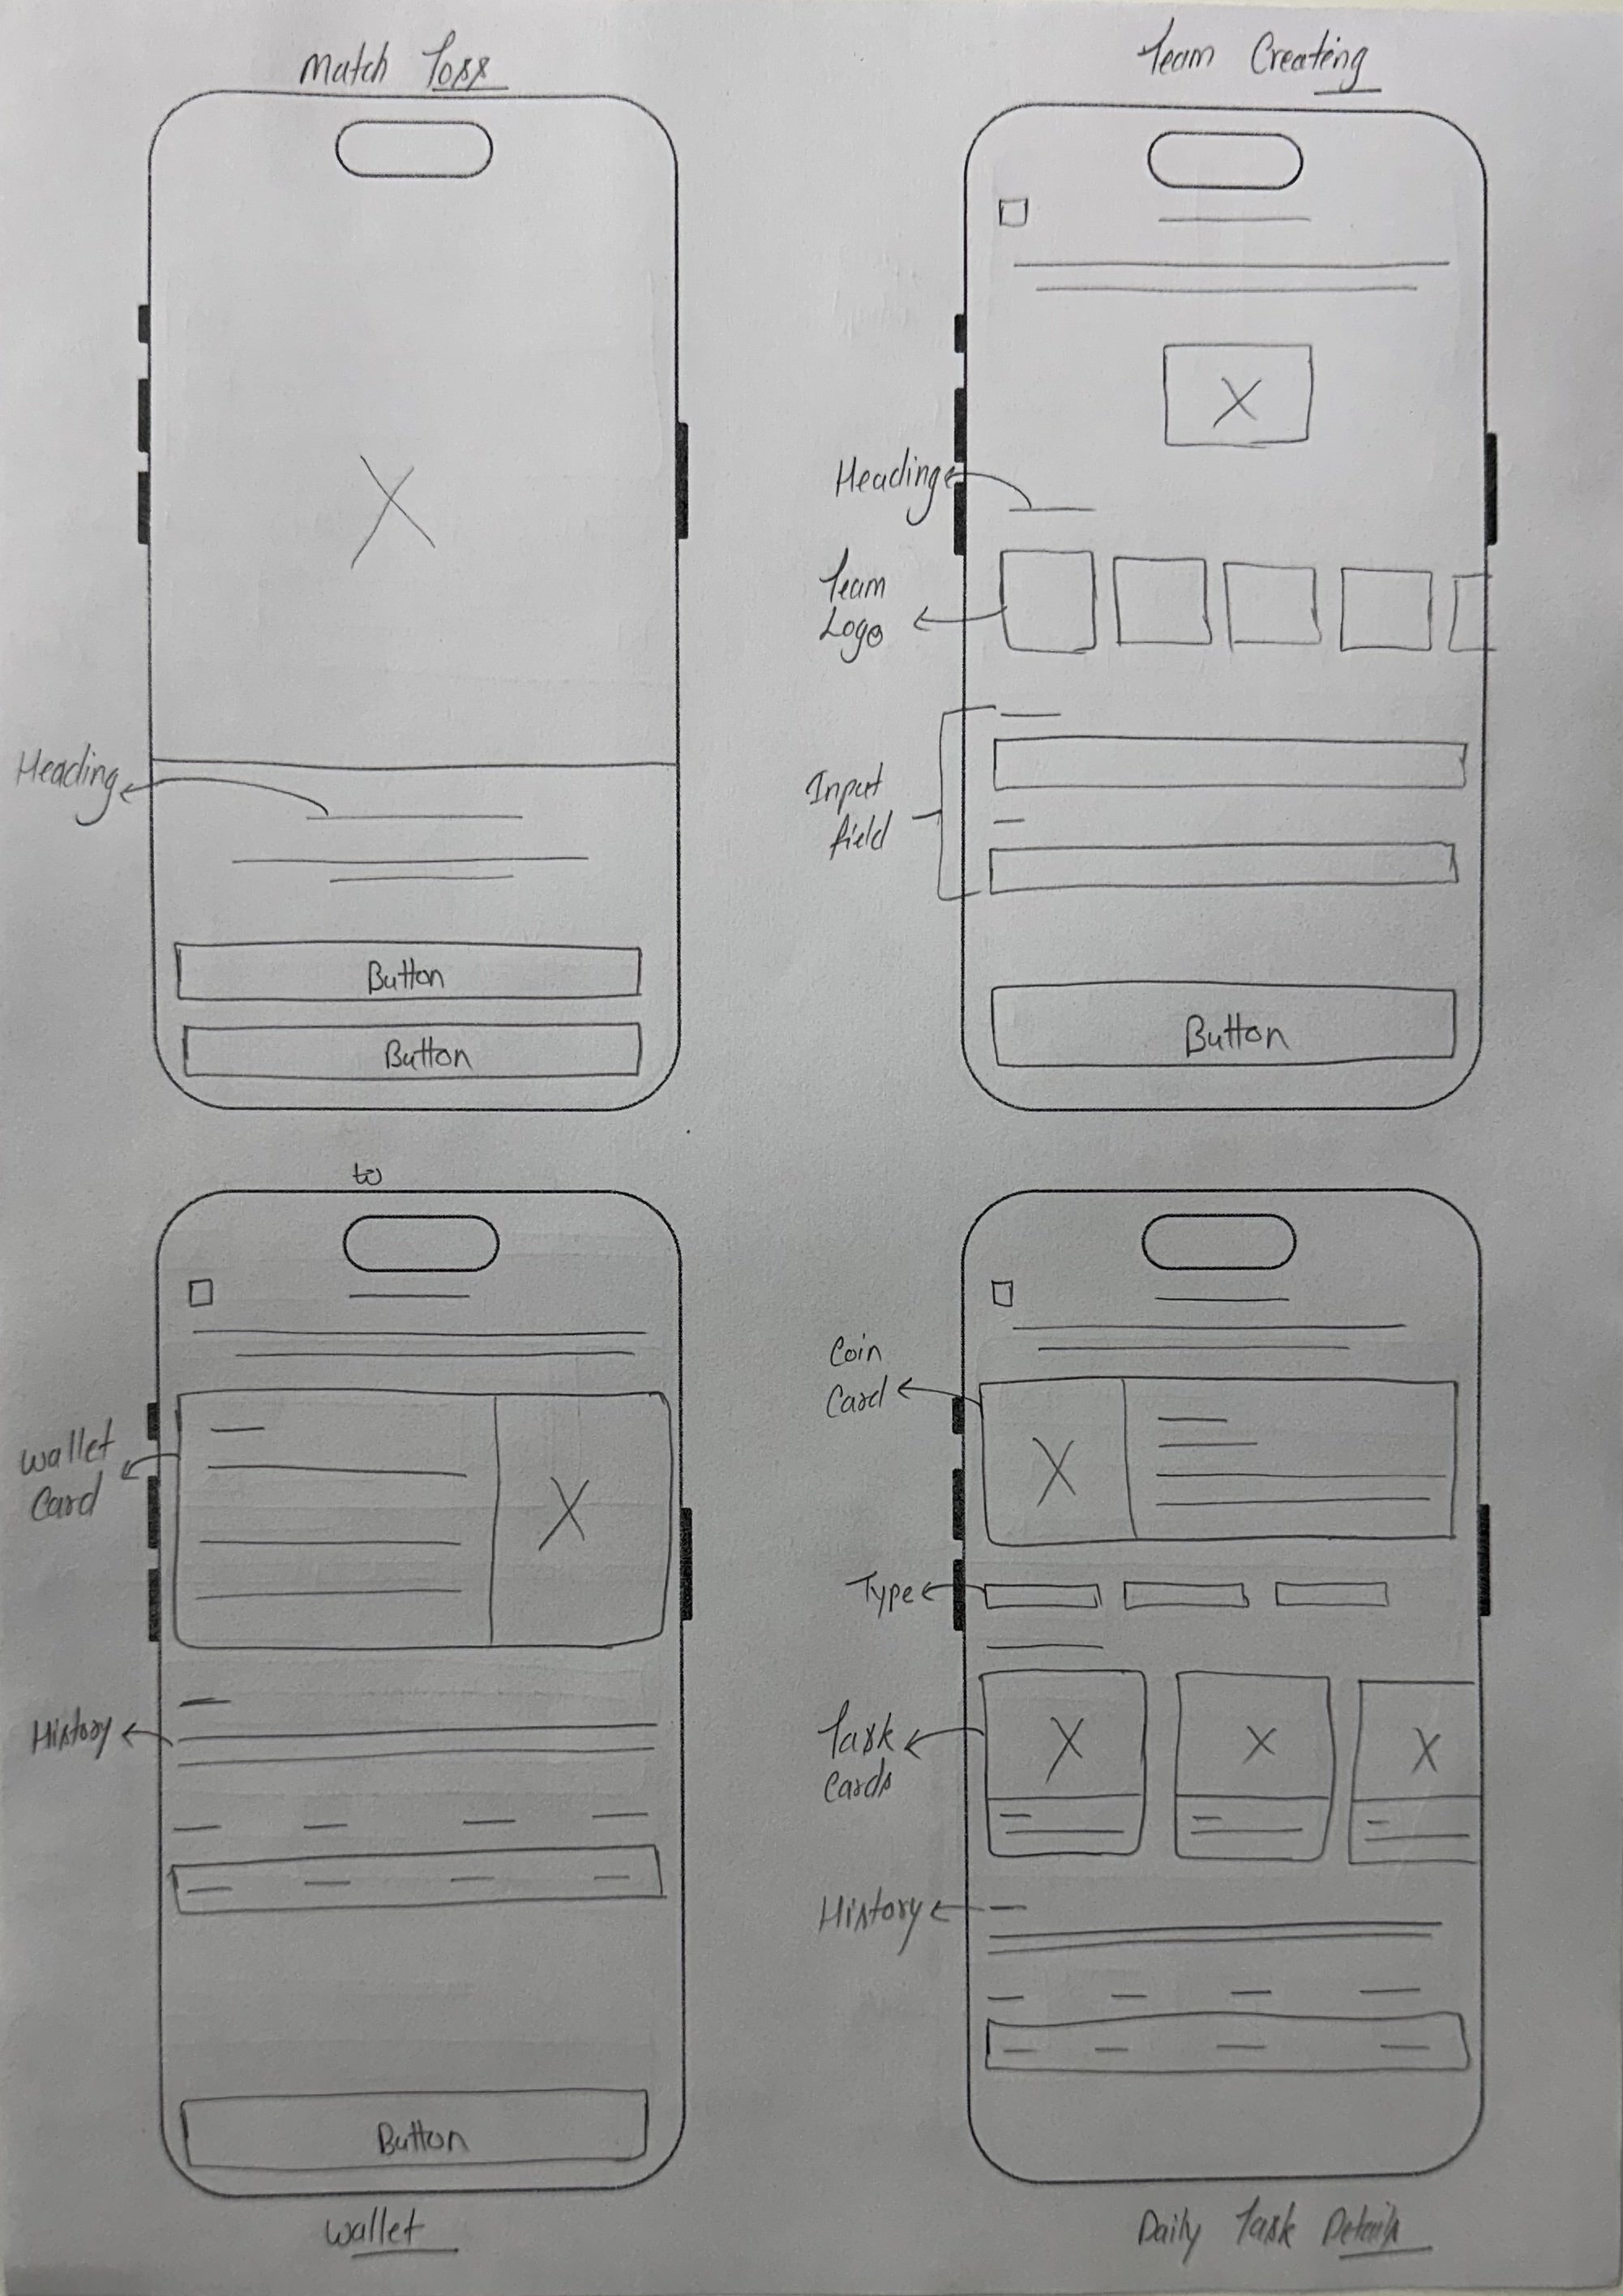 Match Toss
Heading
Button
Button
Team Creating
Heading
Team
Logo
Input
field
Button
to
Wallet
Card
History
Button
Wallet
Coin
Card
Type
Task
Cards
History
Daily Task Details